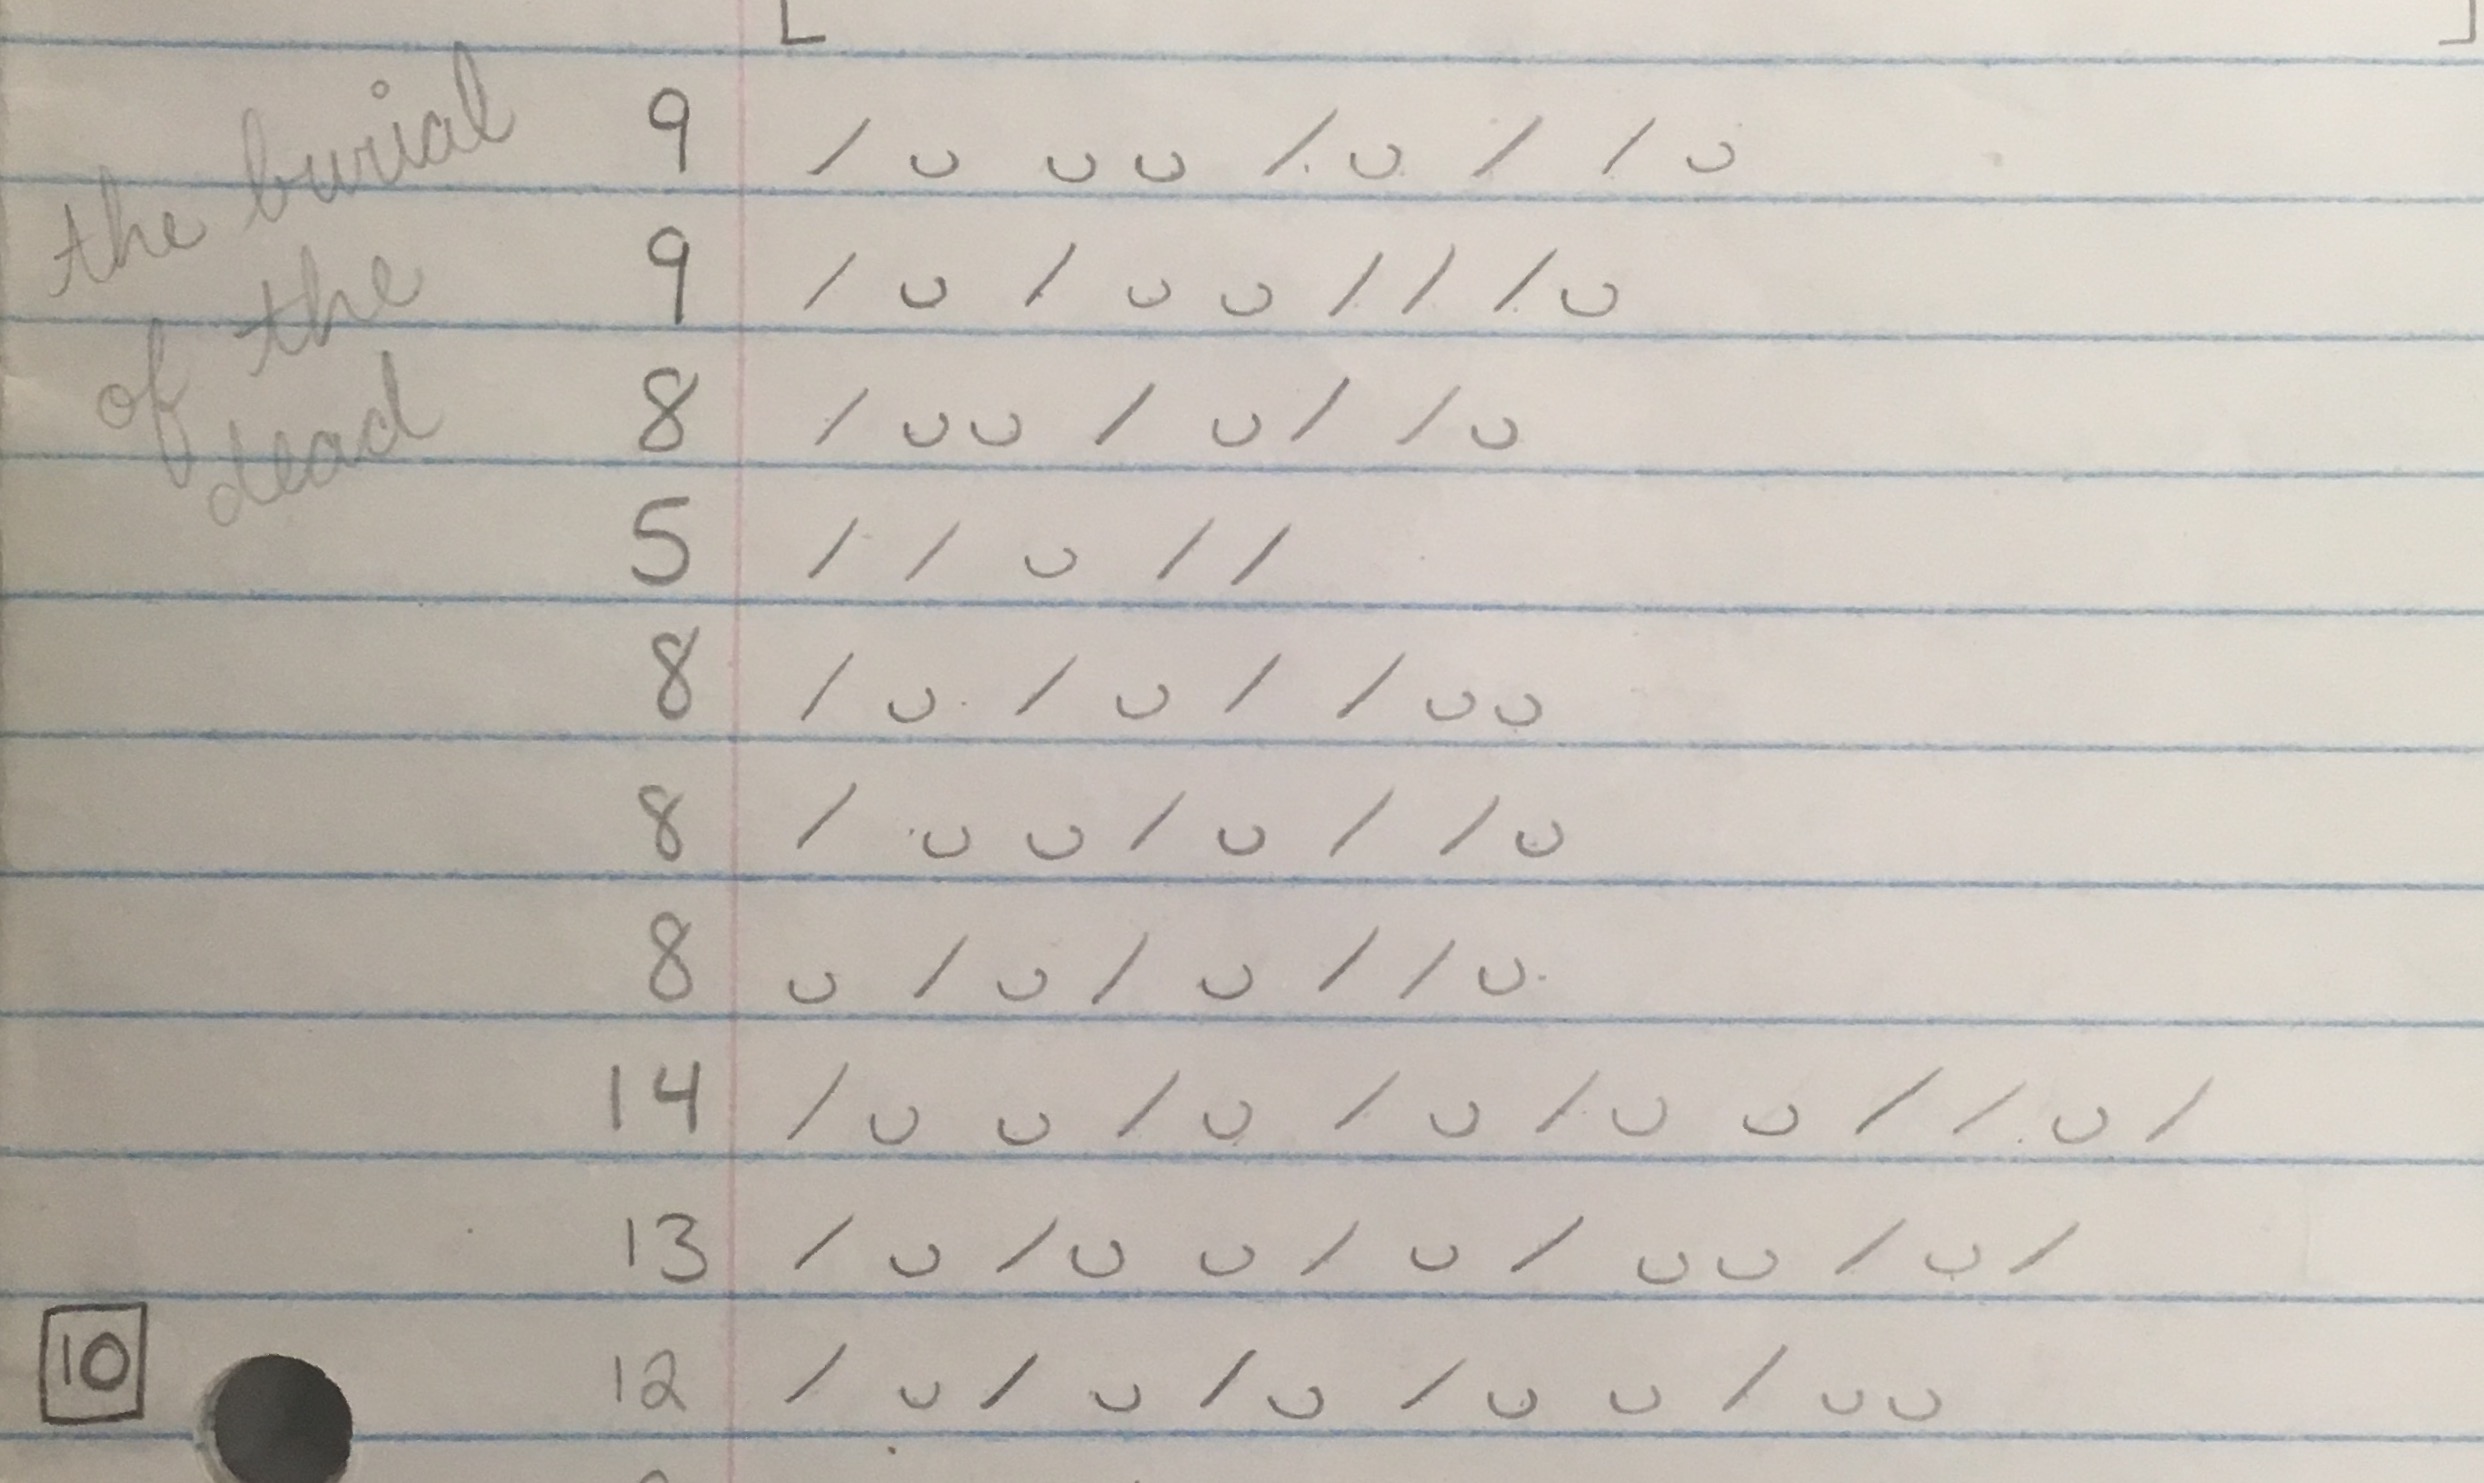 the burial
of the
dead
9 / ᴗ ᴗ ᴗ / ᴗ / / ᴗ
9 / ᴗ / ᴗ ᴗ / / / ᴗ
8 / ᴗ ᴗ / ᴗ / / ᴗ
5 / / ᴗ / /
8 / ᴗ / ᴗ / / ᴗ ᴗ
8 / ᴗ ᴗ / ᴗ / / ᴗ
8 ᴗ / ᴗ / ᴗ / / ᴗ
14 / ᴗ ᴗ / ᴗ / ᴗ / ᴗ ᴗ / / ᴗ /
13 / ᴗ / ᴗ ᴗ / ᴗ / ᴗ ᴗ / ᴗ /
10 12 / ᴗ / ᴗ / ᴗ / ᴗ ᴗ / ᴗ ᴗ